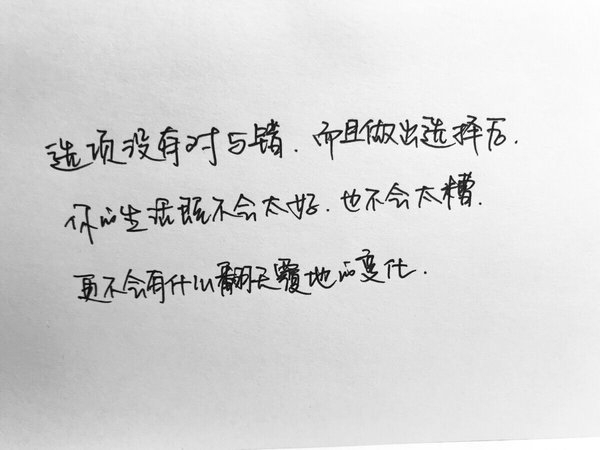 选项没有对与错.而且做出选择后.
你的生活既不会太好.也不会太糟.
更不会有什么翻天覆地的变化.